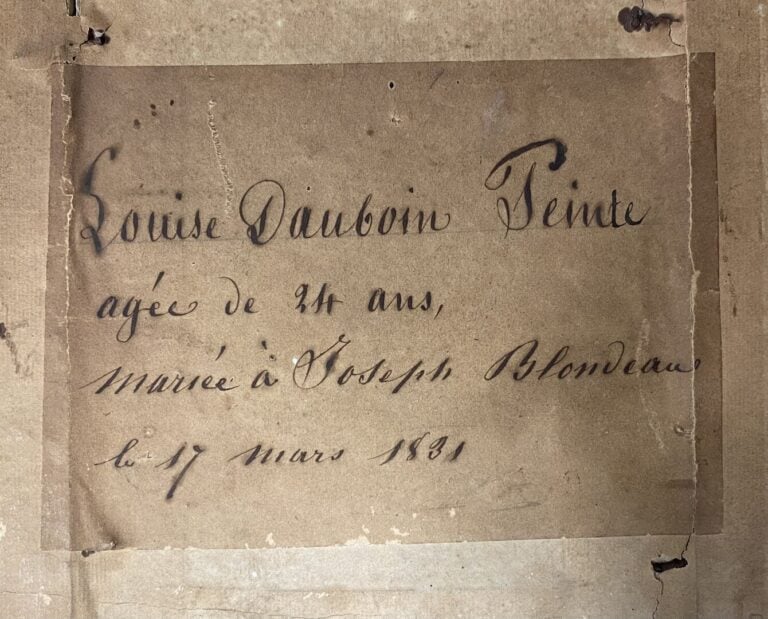 Louise Dauboin Peinte
agée de 24 ans,
mariée à Joseph Blondeau
le 17 mars 1831